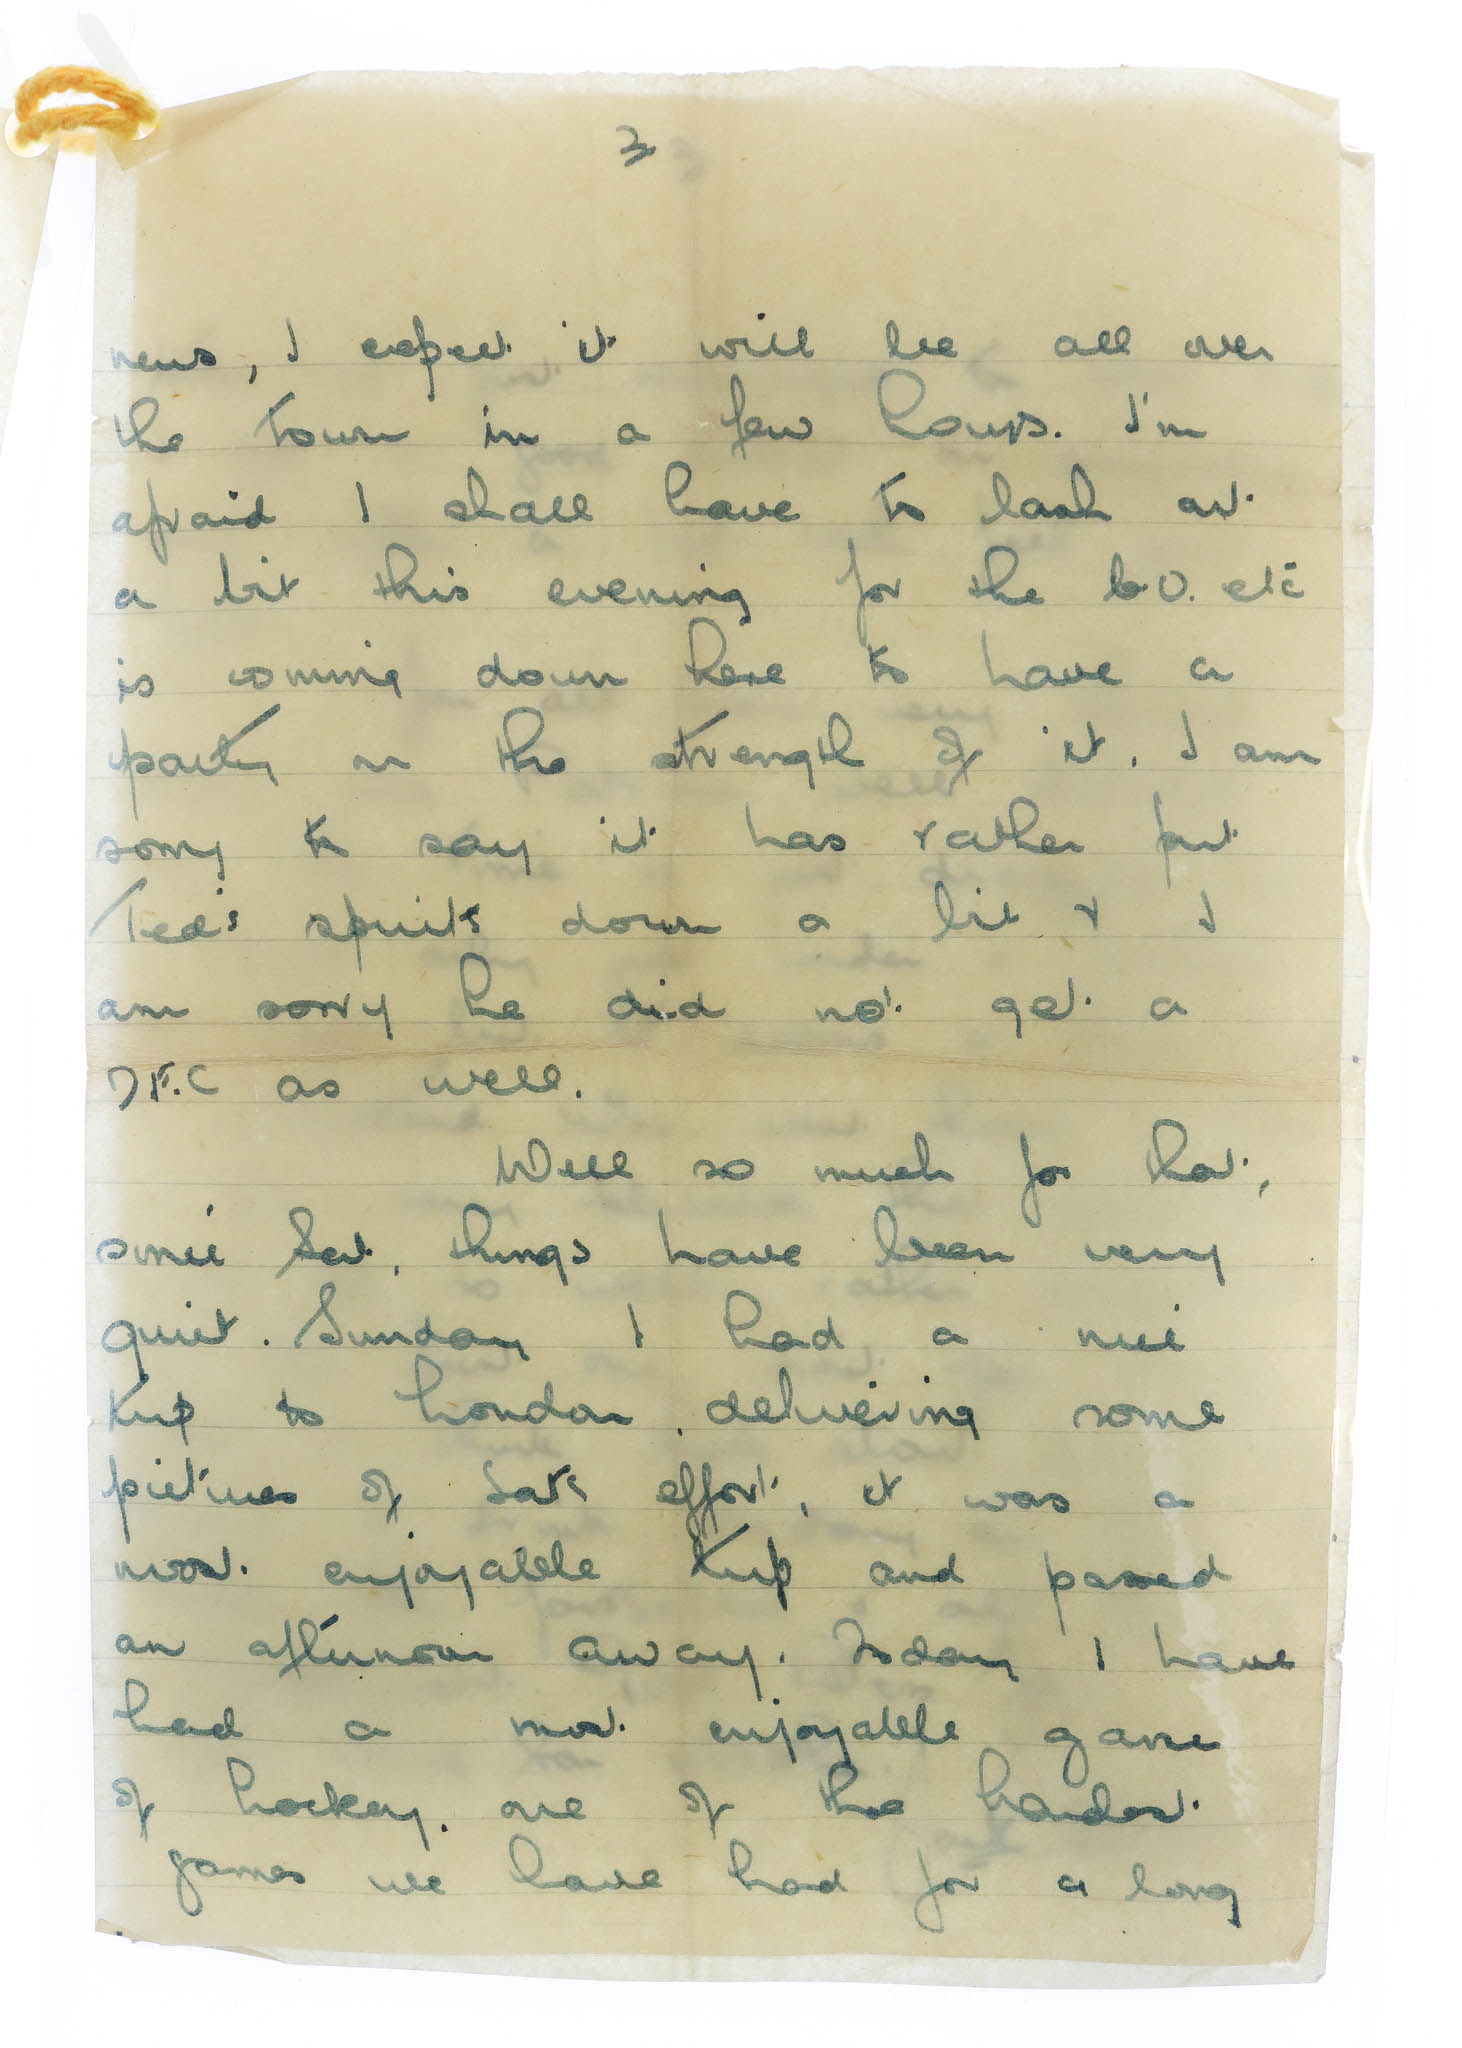 3
news, I expect it will be all over
the town in a few hours. I'm
afraid I shall have to lash out
a bit this evening for the C.O. etc
is coming down here to have a
party on the strength of it. I am
sorry to say it has rather put
Ted's spirits down a bit & I
am sorry he did not get a
DF.C as well.
Well so much for that,
since Sat, things have been very
quiet. Sunday I had a nice
trip to London, delivering some
pictures of Sat's effort, it was a
most enjoyable trip and passed
an afternoon away. Today I have
had a most enjoyable game
of hockey, one of the hardest
games we have had for a long